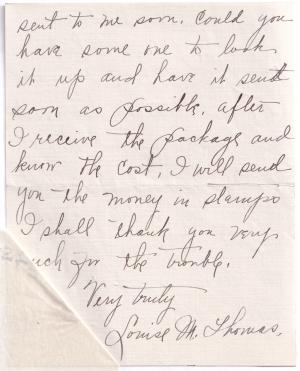 sent to me soon. Could you
have some one to look
it up and have it sent
soon as possible. After
I receive the package and
know the cost, I will send
you the money in stamps
I shall thank you very
uch for the trouble.
Very truly
Louise M. Thomas.